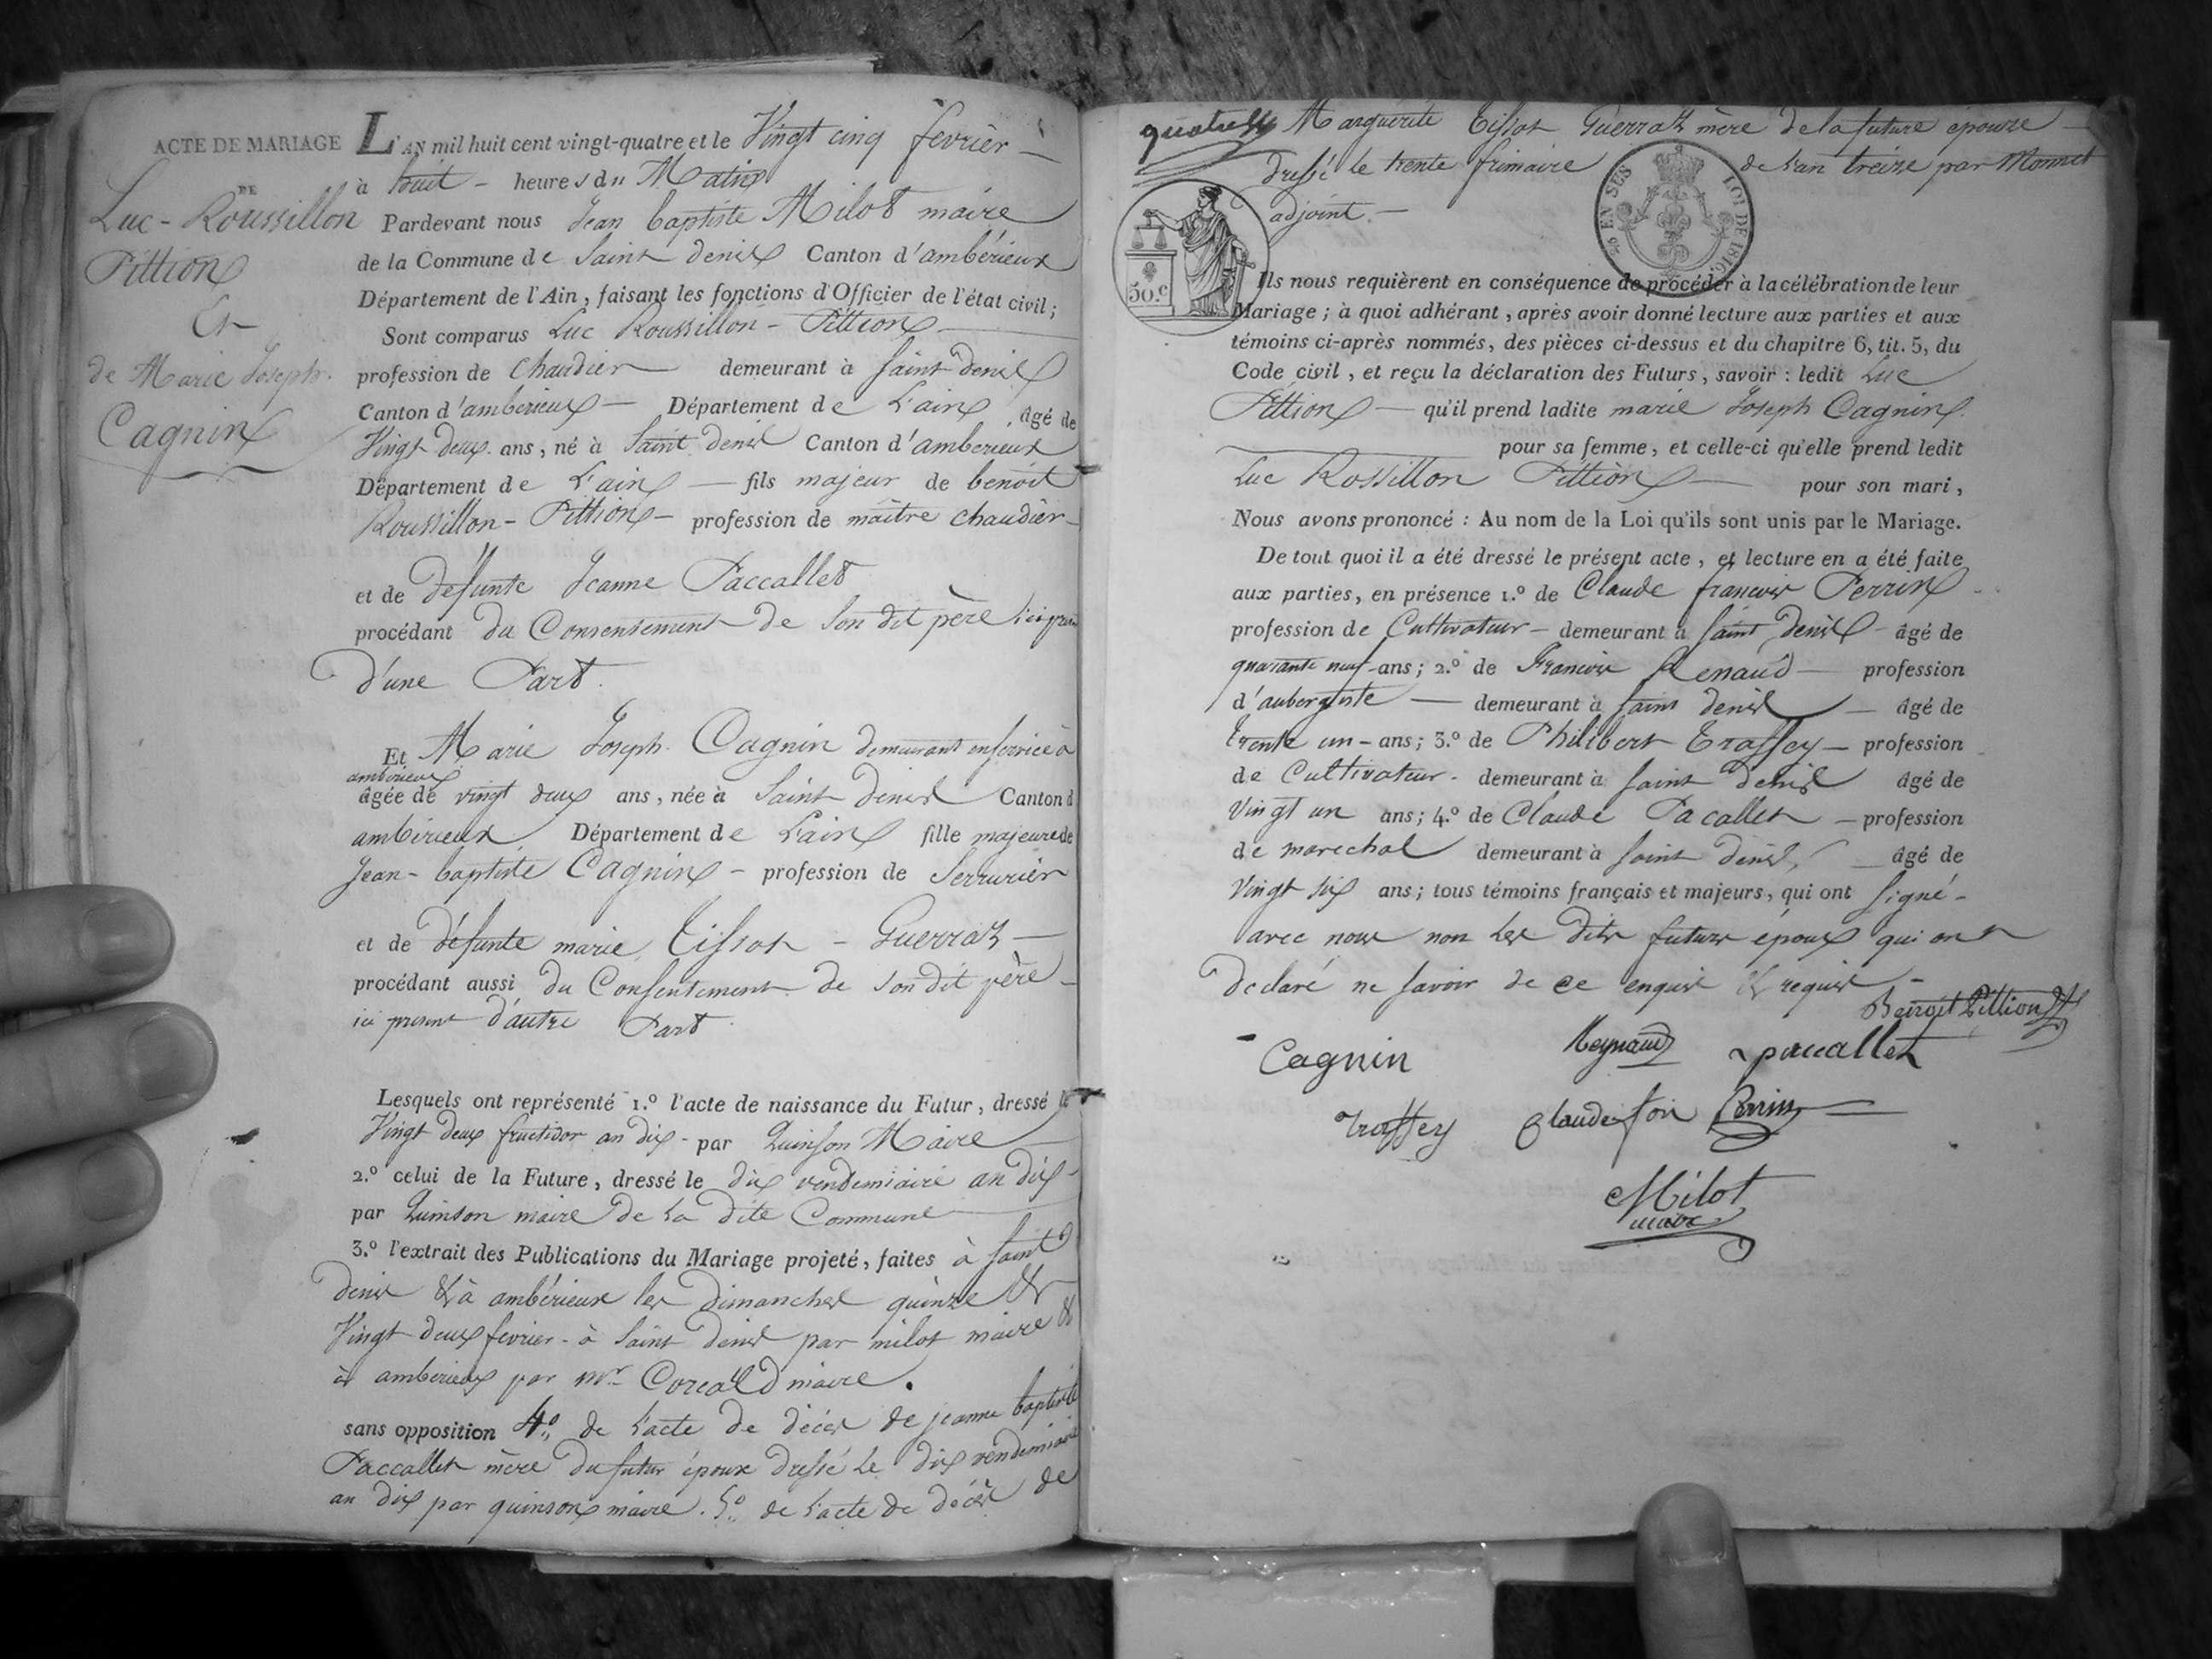 ACTE DE MARIAGE
DE
Luc - Roussillon
Pittion
Et
de Marie Joseph
Cagnin
L'AN mil huit cent vingt-quatre et le Vingt cinq fevrier
à huit heures du Matin
Pardevant nous Jean baptiste Milot maire
de la Commune de Saint denis Canton d'ambérieux
Département de l'Ain, faisant les fonctions d'Officier de l'état civil;
Sont comparus Luc Roussillon - Pittion
profession de Chaudier demeurant à Saint denis
Canton d'amberieux Département de L'ain âgé de
Vingt deux ans, né à Saint denis Canton d'amberieux
Département de L'ain fils majeur de benoit
Roussillon - Pittion profession de maître chaudier
et de défunte Jeanne Paccallet
procédant du Consentement de Son dit père ici
d'une Part.
Et Marie Joseph Cagnin demeurant en service à
amberieux
âgée de vingt deux ans, née à Saint denis Canton d
amberieux Département de L'ain fille majeure de
Jean - baptiste Cagnin - profession de Serrurier
et de défunte marie Tissot - Guerraz
procédant aussi du Consentement de Son dit père
ici present d'autre Part.
Lesquels ont représenté 1.º l'acte de naissance du Futur, dressé le
Vingt deux fructidor an dix - par Quinson Maire
2.º celui de la Future, dressé le dix vendemiaire an dix
par Quinson maire de La dite Commune
3.º l'extrait des Publications du Mariage projeté, faites à Saint
denis & à ambérieux les dimanches quinze &
Vingt deux fevrier - à Saint denis par milot maire &
à amberieux par mr. maire.
sans opposition 4.º de L'acte de décès de jeanne baptiste
Paccallet mère du futur époux dressé Le dix vendemiaire
an dix par quinson maire. 5.º de L'acte de décès de
Marguerite Tissot Guerraz mère de la future épouse
dressé le trente frimaire de L'an treize par Monnet
adjoint.
50.c
EN SUS
LOI DE 1816
Ils nous requièrent en conséquence de procéder à la célébration de leur
Mariage; à quoi adhérant, après avoir donné lecture aux parties et aux
témoins ci-après nommés, des pièces ci-dessus et du chapitre 6, tit. 5, du
Code civil, et reçu la déclaration des Futurs, savoir: ledit Luc
Pittion qu'il prend ladite marie Joseph Cagnin
pour sa femme, et celle-ci qu'elle prend ledit
Luc Rossillon Pittion pour son mari,
Nous avons prononcé: Au nom de la Loi qu'ils sont unis par le Mariage.
De tout quoi il a été dressé le présent acte, et lecture en a été faite
aux parties, en présence 1.º de Claude francois Perrin
profession de Cultivateur - demeurant à Saint denis âgé de
quarante neuf ans; 2.º de Francois Renaud profession
d'aubergiste demeurant à Saint denis âgé de
trente un - ans; 3.º de Philibert Traffey - profession
de Cultivateur - demeurant à Saint denis âgé de
Vingt un ans; 4.º de Claude Pacallet - profession
de marechal demeurant à Saint denis âgé de
Vingt six ans; tous témoins français et majeurs, qui ont Signé -
avec nous non Les dits futurs époux qui ont
declaré ne Savoir de ce enquis & requis -
Benoit Pittion
Cagnin Reynaud paccallet
Traffey Claude foi Perrin
Milot
maire